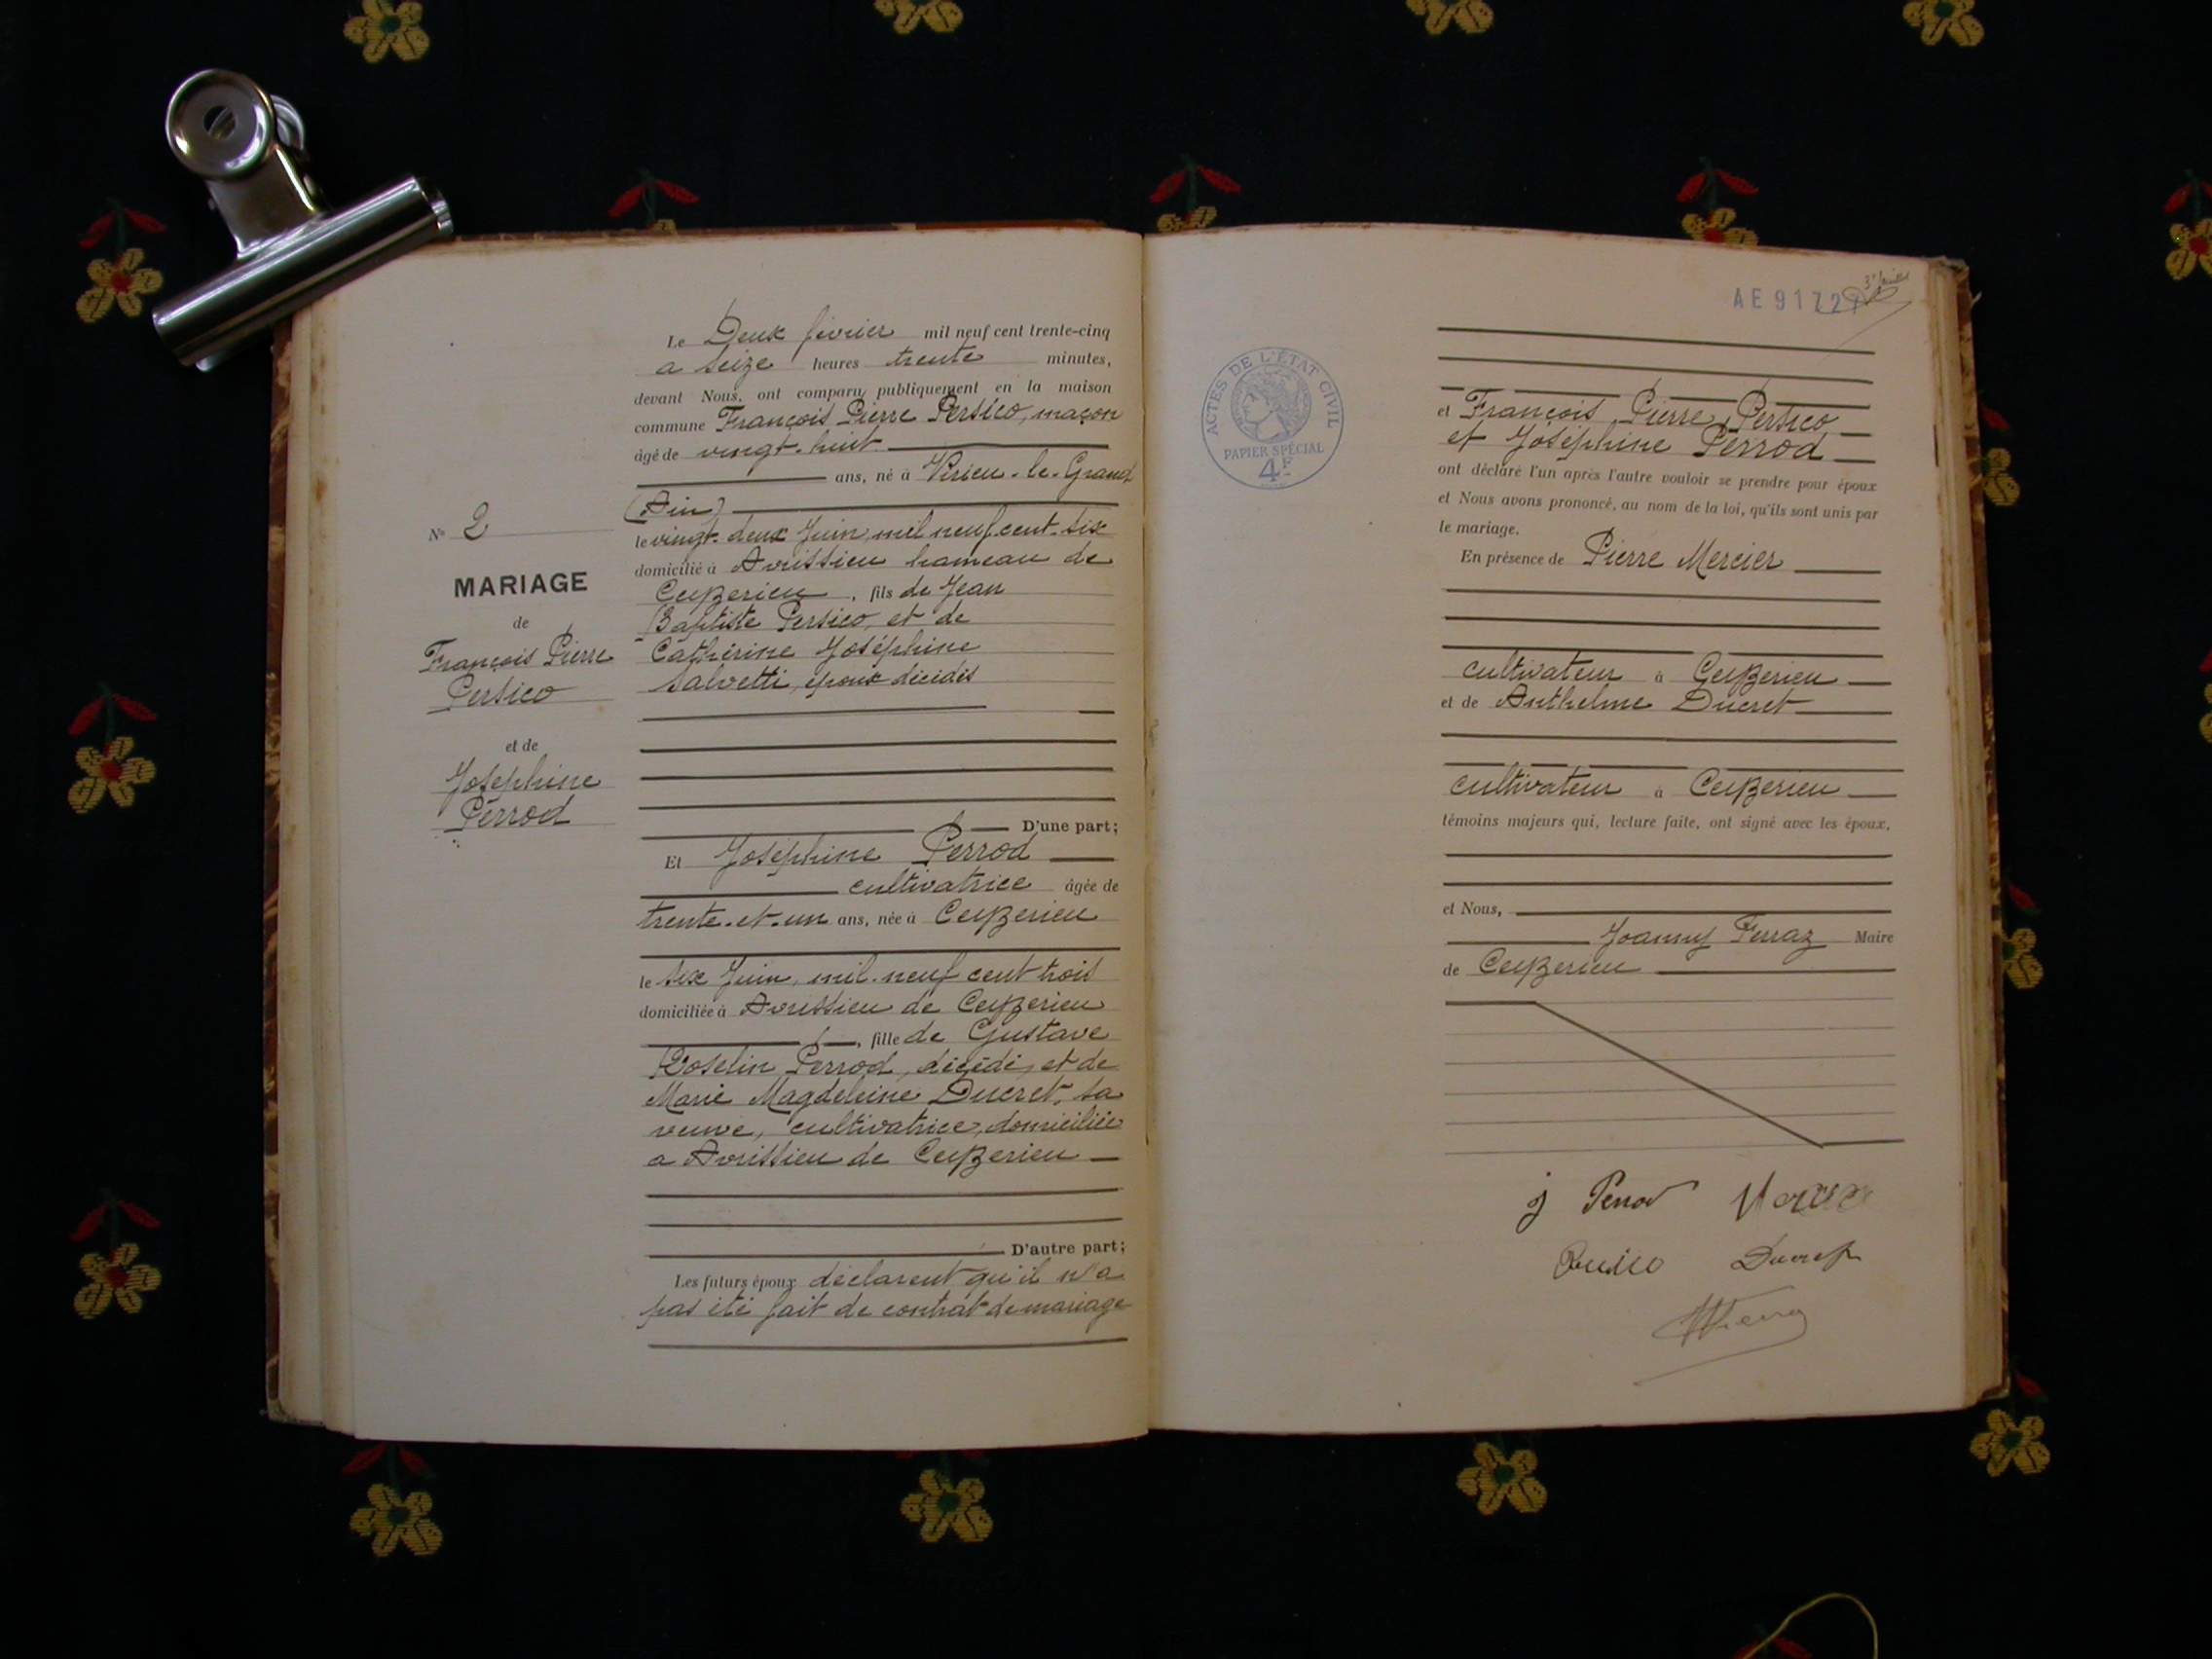 Le Deux février mil neuf cent trente-cinq
a seize heures trente minutes,
devant Nous, ont comparu publiquement en la maison
commune François Pierre Persico, maçon
âgé de vingt-huit
ans, né à Virieu-le-Grand
(Ain)
le vingt-deux Juin mil neuf cent six
domicilié à Avrissieu hameau de
Ceyzerieu, fils de Jean
Baptiste Persico, et de
Cathérine Joséphine
Salvetti, époux décédés
D'une part;
Et Joséphine Perrod
cultivatrice âgée de
trente-et-un ans, née à Ceyzerieu
le six Juin, mil neuf cent trois
domiciliée à Avrissieu de Ceyzerieu
, fille de Gustave
Roselin Perrod, décédé, et de
Marie Magdeleine Ducret, sa
veuve, cultivatrice, domiciliée
a Avrissieu de Ceyzerieu
D'autre part;
Les futurs époux déclarent qu'il n'a
pas été fait de contrat de mariage
No 2
MARIAGE
de
François Pierre
Persico
et de
Joséphine
Perrod
AE 91727
ACTES DE L'ÉTAT CIVIL
PAPIER SPÉCIAL
4F
et François Pierre Persico
et Joséphine Perrod
ont déclaré l'un après l'autre vouloir se prendre pour époux
et Nous avons prononcé, au nom de la loi, qu'ils sont unis par
le mariage.
En présence de Pierre Mercier
cultivateur à Ceyzerieu
et de Anthelme Ducret
cultivateur à Ceyzerieu
témoins majeurs qui, lecture faite, ont signé avec les époux,
et Nous,
Joanny Ferraz Maire
de Ceyzerieu
j Perrod
Ducret